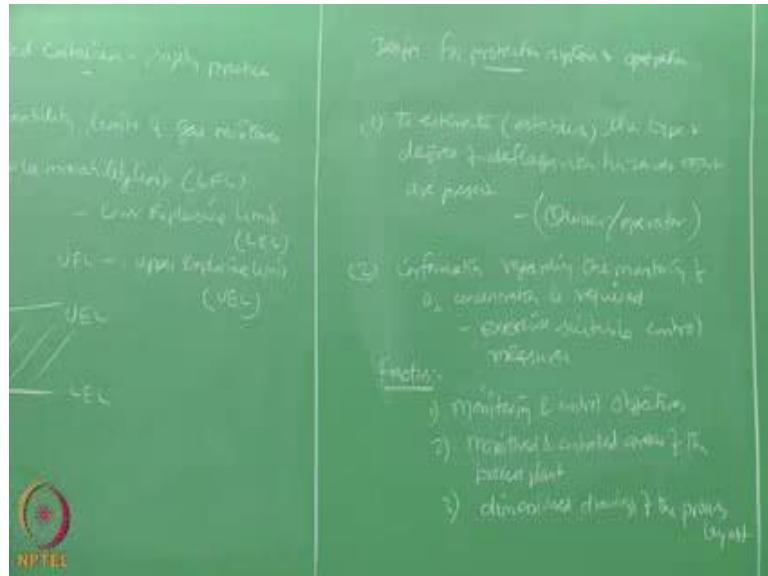 practice
limits & gas mixtures
limit (LFL)
- Lower Explosive Limit
(LEL)
UFL - upper Explosive limit
(UEL)
UEL
LEL
Design for protection system & operation
(1) To estimate (establish) the type &
degree of deflagration hazards that
are present
- (Owner/operator)
(2) information regarding the monitoring of
O2 concentration is required
- exercise suitable control
measures
Factors:-
1) monitoring & control objectives
2) monitored & controlled areas of the
process plant
3) dimensioned drawings of the process
layout
NPTEL